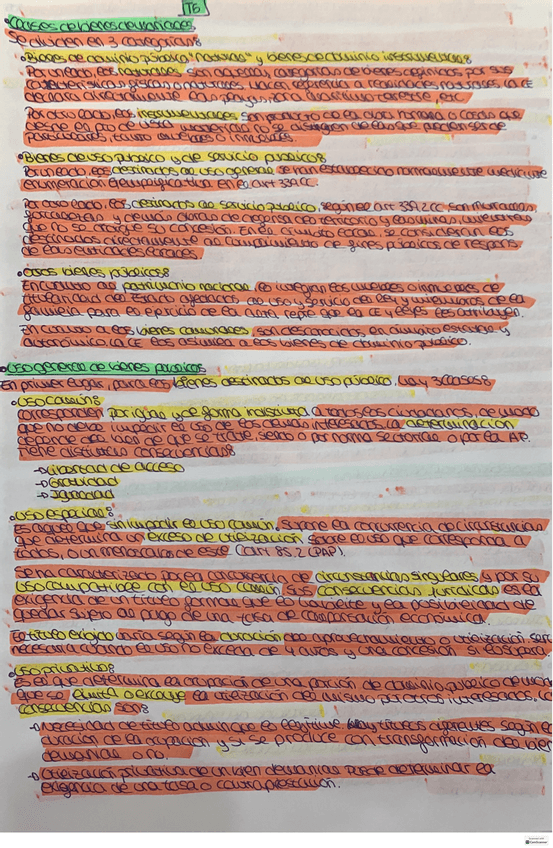 T5
• Clases de bienes demaniales
Se dividen en 3 categorías:
• Bienes de dominio público "natural" y bienes de dominio instrumental:
Por un lado, los naturales son aquellas categorías de bienes definidos por sus
características físicas o naturales. Hacen referencia a realidades naturales. La CE
declara directamente las playas, zona marítimo terrestre etc.
Por otro lado, los instrumentales son producto de la obra humana, cosas que
desde el pto de vista material no se distinguen de las que pueden ser de
particulares, tanto muebles o inmuebles.
• Bienes de uso público y de servicio público:
Por un lado, los destinados a uso general se han establecido normalmente mediante
enumeración ejemplificativa en el art 339 CC.
Por otro lado, los destinados al servicio público, según el art 339.2 CC son murallas,
fortalezas y demás obras de defensa del territorio y las minas, mientras
que no se otorgue su concesión. En el ámbito local, se consideran los
destinados directamente al cumplimiento de fines públicos de respons.
de las entidades locales.
• Otros bienes públicos:
En cuanto al patrimonio nacional, lo integran los muebles o inmuebles de
titularidad del Estado afectados al uso y servicio del Rey y miembros de la
familia real para el ejercicio de la alta repte que la CE y leyes les atribuyen.
En cuanto a los bienes comunales, son desarrollados en ámbito estatal y
autonómico. La CE los asimila a los bienes de dominio público.
• Uso general de bienes públicos
En primer lugar, para los bienes destinados al uso público, hay 3 clases:
• Uso común:
Corresponden por igual y de forma indistinta a todos los ciudadanos, de modo
que no debe impedir el uso de los demás interesados. La determinación
depende del bien de que se trate, siendo o por norma sectorial o por la AP.
Tiene distintas consecuencias:
→ Libertad de acceso
→ Gratuidad
→ Igualdad
• Uso especial:
Es aquel que sin impedir el uso común, supone la concurrencia de circunstancias
que determina un exceso de utilización sobre el uso que corresponda a
todos, o un menoscabo de este (art. 85.2 LPAP).
Se caracteriza por la concurrencia de circunstancias singulares y por su
uso compatible con el uso común. Sus consecuencias jurídicas es la
exigencia de un título formal que lo habilite y la posibilidad de
quedar sujeto al pago de una tasa de compensación económica.
El título exigido varía según la duración del aprovechamiento o utilización
necesaria cuando el uso no exceda de 4 años y una concesión si lo supera
• Uso privativo:
Es el que determina la ocupación de una porción de dominio público de modo
que se limita o excluye la utilización del mismo por otros interesados. La
consecuencias son:
→ Necesidad de título adtvo que lo legitime. Hay títulos diferentes según la
duración de la ocupación y si se produce con transformación del bien
demanial o no.
→ Utilización privativa de un bien demanial puede determinar la
exigencia de una tasa o contraprestación.
CamScanner